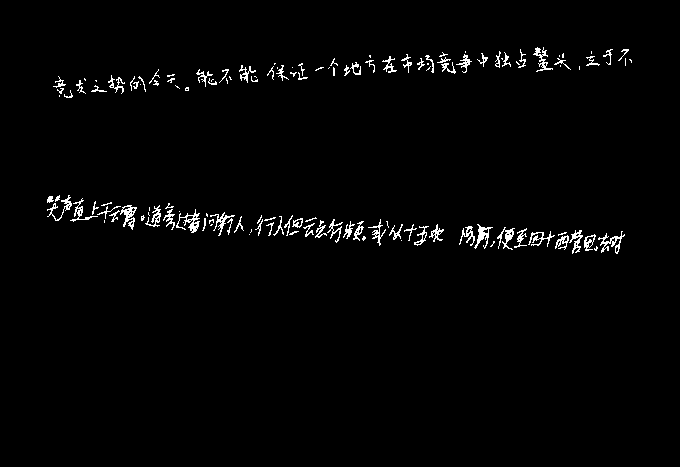 竞发之势的今天。能不能保证一个地方在市场竞争中独占鳌头,立于不
哭声直上干云霄。道旁过者问行人,行人但云点行频。或从十五北防河,便至四十西营田。去时